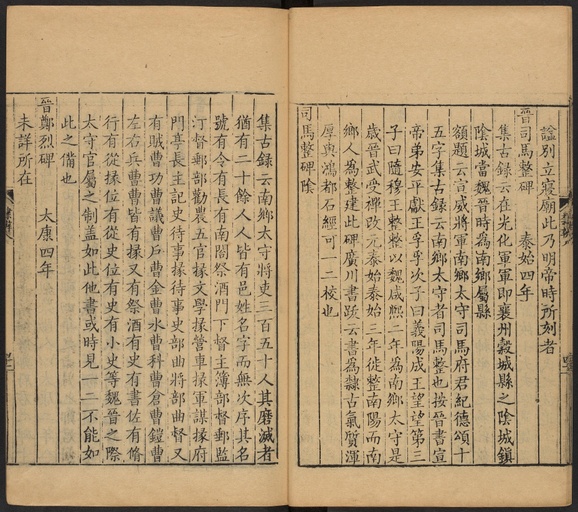 謚別立寢廟此乃明帝時所刻者
晉司馬整碑 泰始四年
集古録云在光化軍軍即襄州穀城縣之陰城鎮
陰城當魏晉時為南鄉屬縣
額題云宣威將軍南鄉太守司馬府君紀德頌十
五字集古録云南鄉太守者司馬整也按晉書宣
帝弟安平獻王孚孚次子曰義陽成王望望第三
子曰隨穆王整整以魏咸熙二年為南鄉太守是
歳晉武受禪改元泰始泰始三年徙整南陽而南
鄉人為整建此碑廣川書跋云書為隸古氣質渾
厚與鴻都石經可一二校也
司馬整碑陰
集古録云南鄉太守將吏三百五十人其磨滅者
猶有二十餘人人皆有邑姓名字而無次序其名
號有令有長有南閤祭酒門下督主簿部督郵監
汀督郵部勸農五官掾文學掾營車掾軍謀掾府
門亭長主記史待事掾待事史部曲將部曲督又
有賊曹功曹議曹戶曹金曹水曹科曹倉曹鎧曹
左右兵曹曹皆有掾又有祭酒有史有書佐有脩
行有從掾位有從史位有史有小史等魏晉之際
太守官屬之制盖如此他書或時見一二不能如
此之備也
晉鄭烈碑 太康四年
未詳所在